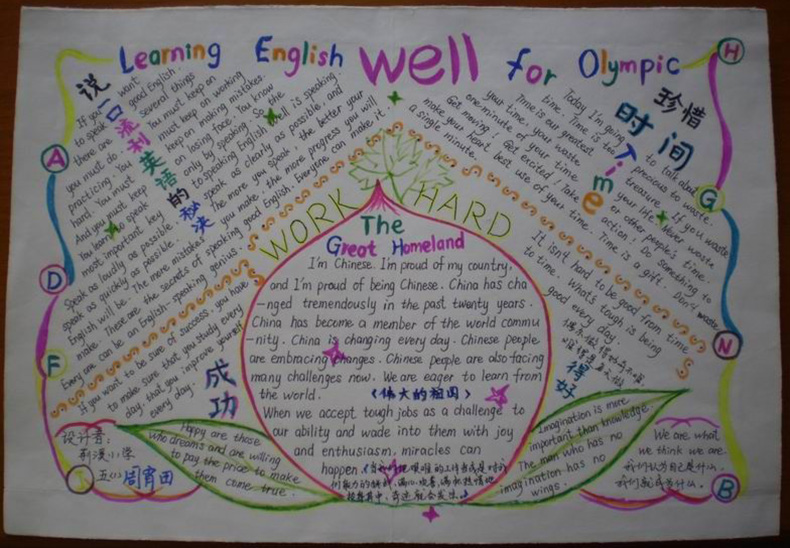 Learning English well for Olympic
说一口流利英语的秘决
If you want
to speak good English.
there are several things
you must do. You must keep on
practicing. You must keep on working
hard. You must keep on making mistakes.
And you must keep on losing face. You know
You learn to speak only by speaking. So the
most important key to speaking English well is speaking.
Speak as loudly as possible. speak as clearly as possible, and
speak as quickly as possible. The more you speak, the better your
English will be. The more mistakes you make, the more progress you will
make. There are the secrets of speaking good English. Everyone can make it.
Every one can be an English-speaking genius.
If you want to be sure of success. you have
to make sure that you study every
day, that you improve yourself
every day.
成功
珍惜时间
Time
Today I'm going to talk about
time. Time is too precious to waste.
Time is our greatest treasure. If you waste
your time, you waste your life. Never waste
one minute of your time or other people's time.
Get moving! Get excited! Take action! Do something to
make your heart best use of your time. Time is a gift. Don't waste
a single minute.
It isn't hard to be good from time
to time. What's tough is being
good every day.
得好
WORK HARD
The
Great Homeland
I'm Chinese. I'm proud of my country,
and I'm proud of being Chinese. China has cha
-nged tremendously in the past twenty years.
China has become a member of the world commu
-nity. China is changing every day. Chinese people
are embracing changes. Chinese people are also facing
many challenges now. We are eager to learn from
the world. 《伟大的祖国》
When we accept tough jobs as a challenge to
our ability and wade into them with joy
and enthusiasm, miracles can
happen.
奇迹就会发生
设计者:
小学
五(1) 周宵田
Happy are those
who dreams and are willing
to pay the price to make
them come true.
Imagination is more
important than knowledge.
The man who has no
imagination has no
wings.
We are what
we think we are.
我们认为自己是什么,
我们就成为什么。
A
D
F
I
H
G
N
B